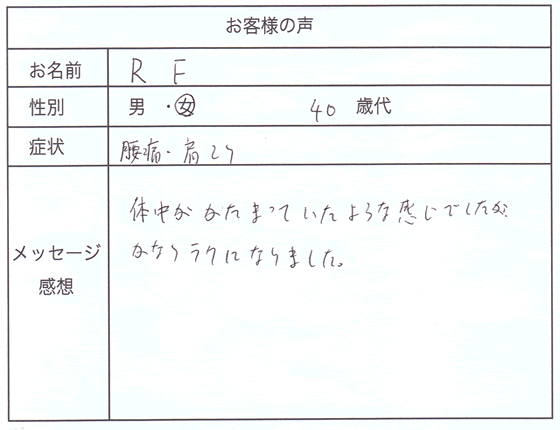 お客様の声
お名前 R F
性別 男 ・ 女 40 歳代
症状 腰痛・肩こり
メッセージ
感想
体中が かたまっていたような感じでしたが
かなりラクになりました。